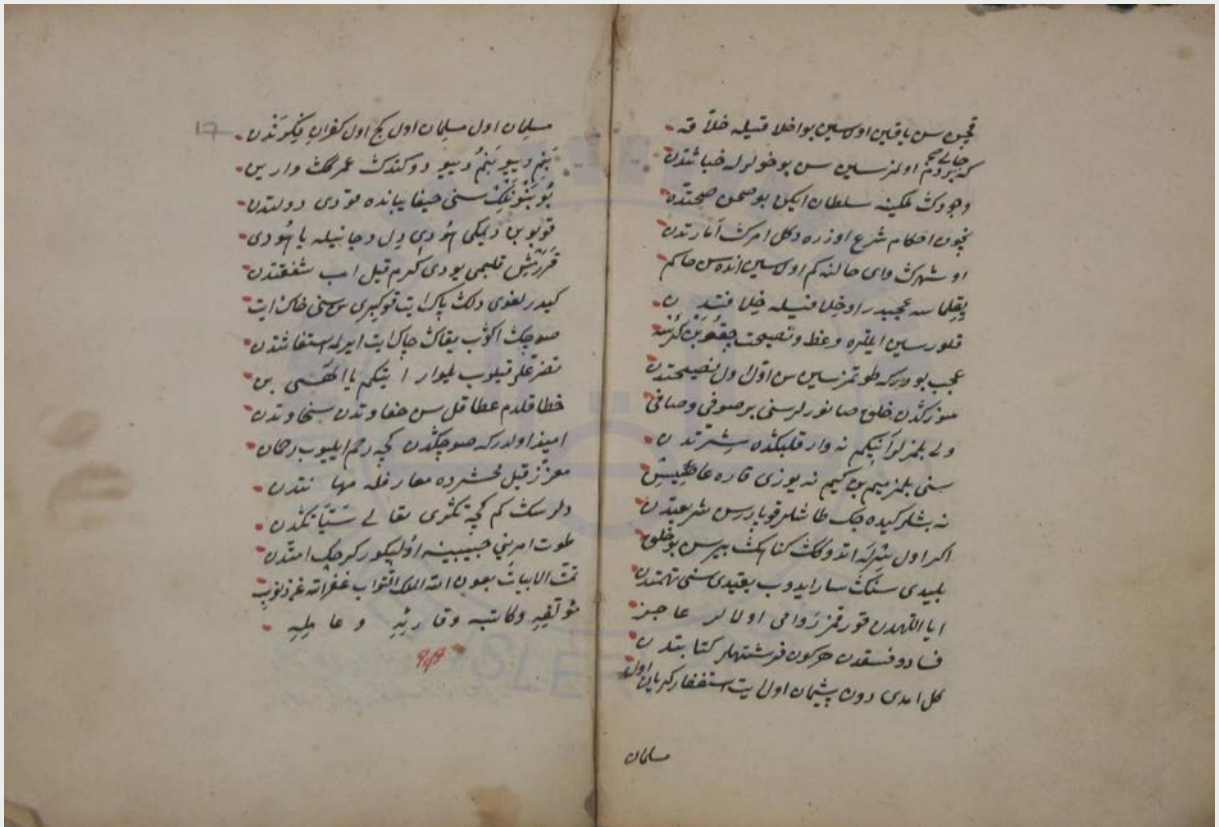 قچن سن یاقین اولەسین بو اخلاقیله خلاقه
که بر دم اولمزسین سن بو خولرله خباثتدن
وجودك ملکینه سلطان ایکن بو صحن صحتده
نچون احکام شرع اوزره دکل امرك اماراتدن
او شهرك وای حالنه کم اولەسین انده سن حاکم
یقلماسه عجبدر اوخلافیله خلافتدن
قلورسین ایللره وعظ ونصیحت چیقوبن کرسه
عجب بودرکه طوتمزسین سن اول اول نصیحتدن
سوزکدن خلق صانورلر سنی بر صوفی وصافی
ولی بلمزلر آنیکم نه وار قلبکده شرتدن
سنی بلمز میم بن کیم نه یوزی قاره عاصیسن
نه بشلر کیده جك طاشلر قوپاررسن شریعتدن
اکر اول سترله اتدوکك کناهك بیرسن بو خلق
بلیدی سنك سار ایدوب یقیدی سنی تهمتدن
ایا اللهدن قورقمز زوامی اولالر عاجز
فساد وفسقدن هرکون فرشتهلر کتابتدن
کل امدی دون پشیمان اول ایت استغفار کریان اول
مسلمان
17
مسلمان اول مسلمان اول کچ اول کفران نیکردن
بنم دیو بنم دیو دوکندك عمرکك وارین
بو بنونکك سنی حیفا یبانده قودی دولتدن
قویوبن دیمکی هودی دل وجانیله یا هودی
قررتمش قلبمی یودی کرم قیل اب شفقتدن
کیدر لغوی دلك پاك ایت قو کبری سنی خاك ایت
صوجك اکوب یقاك چاك ایت ایرله استغاثتدن
تضرعلر قیلوب یلوار ایتکم یا الهی بن
خطا قلدم عطا قل سن خفاوتدن سخاوتدن
امیذ اولدرکه صوچکدن کچه رحم ایلیوب رحمان
معزز قیل محشرده معارفله مهانتدن
دلرسك کم کچه تکری تعالی سیئاتکدن
طوت امرینی حبیبینه اولیکور کرچك امتدن
تمت الابیات بعون الله الملك التواب غفر الله عن ذنوب
مؤلفیه وکاتبه وقارئیه وعاملیه